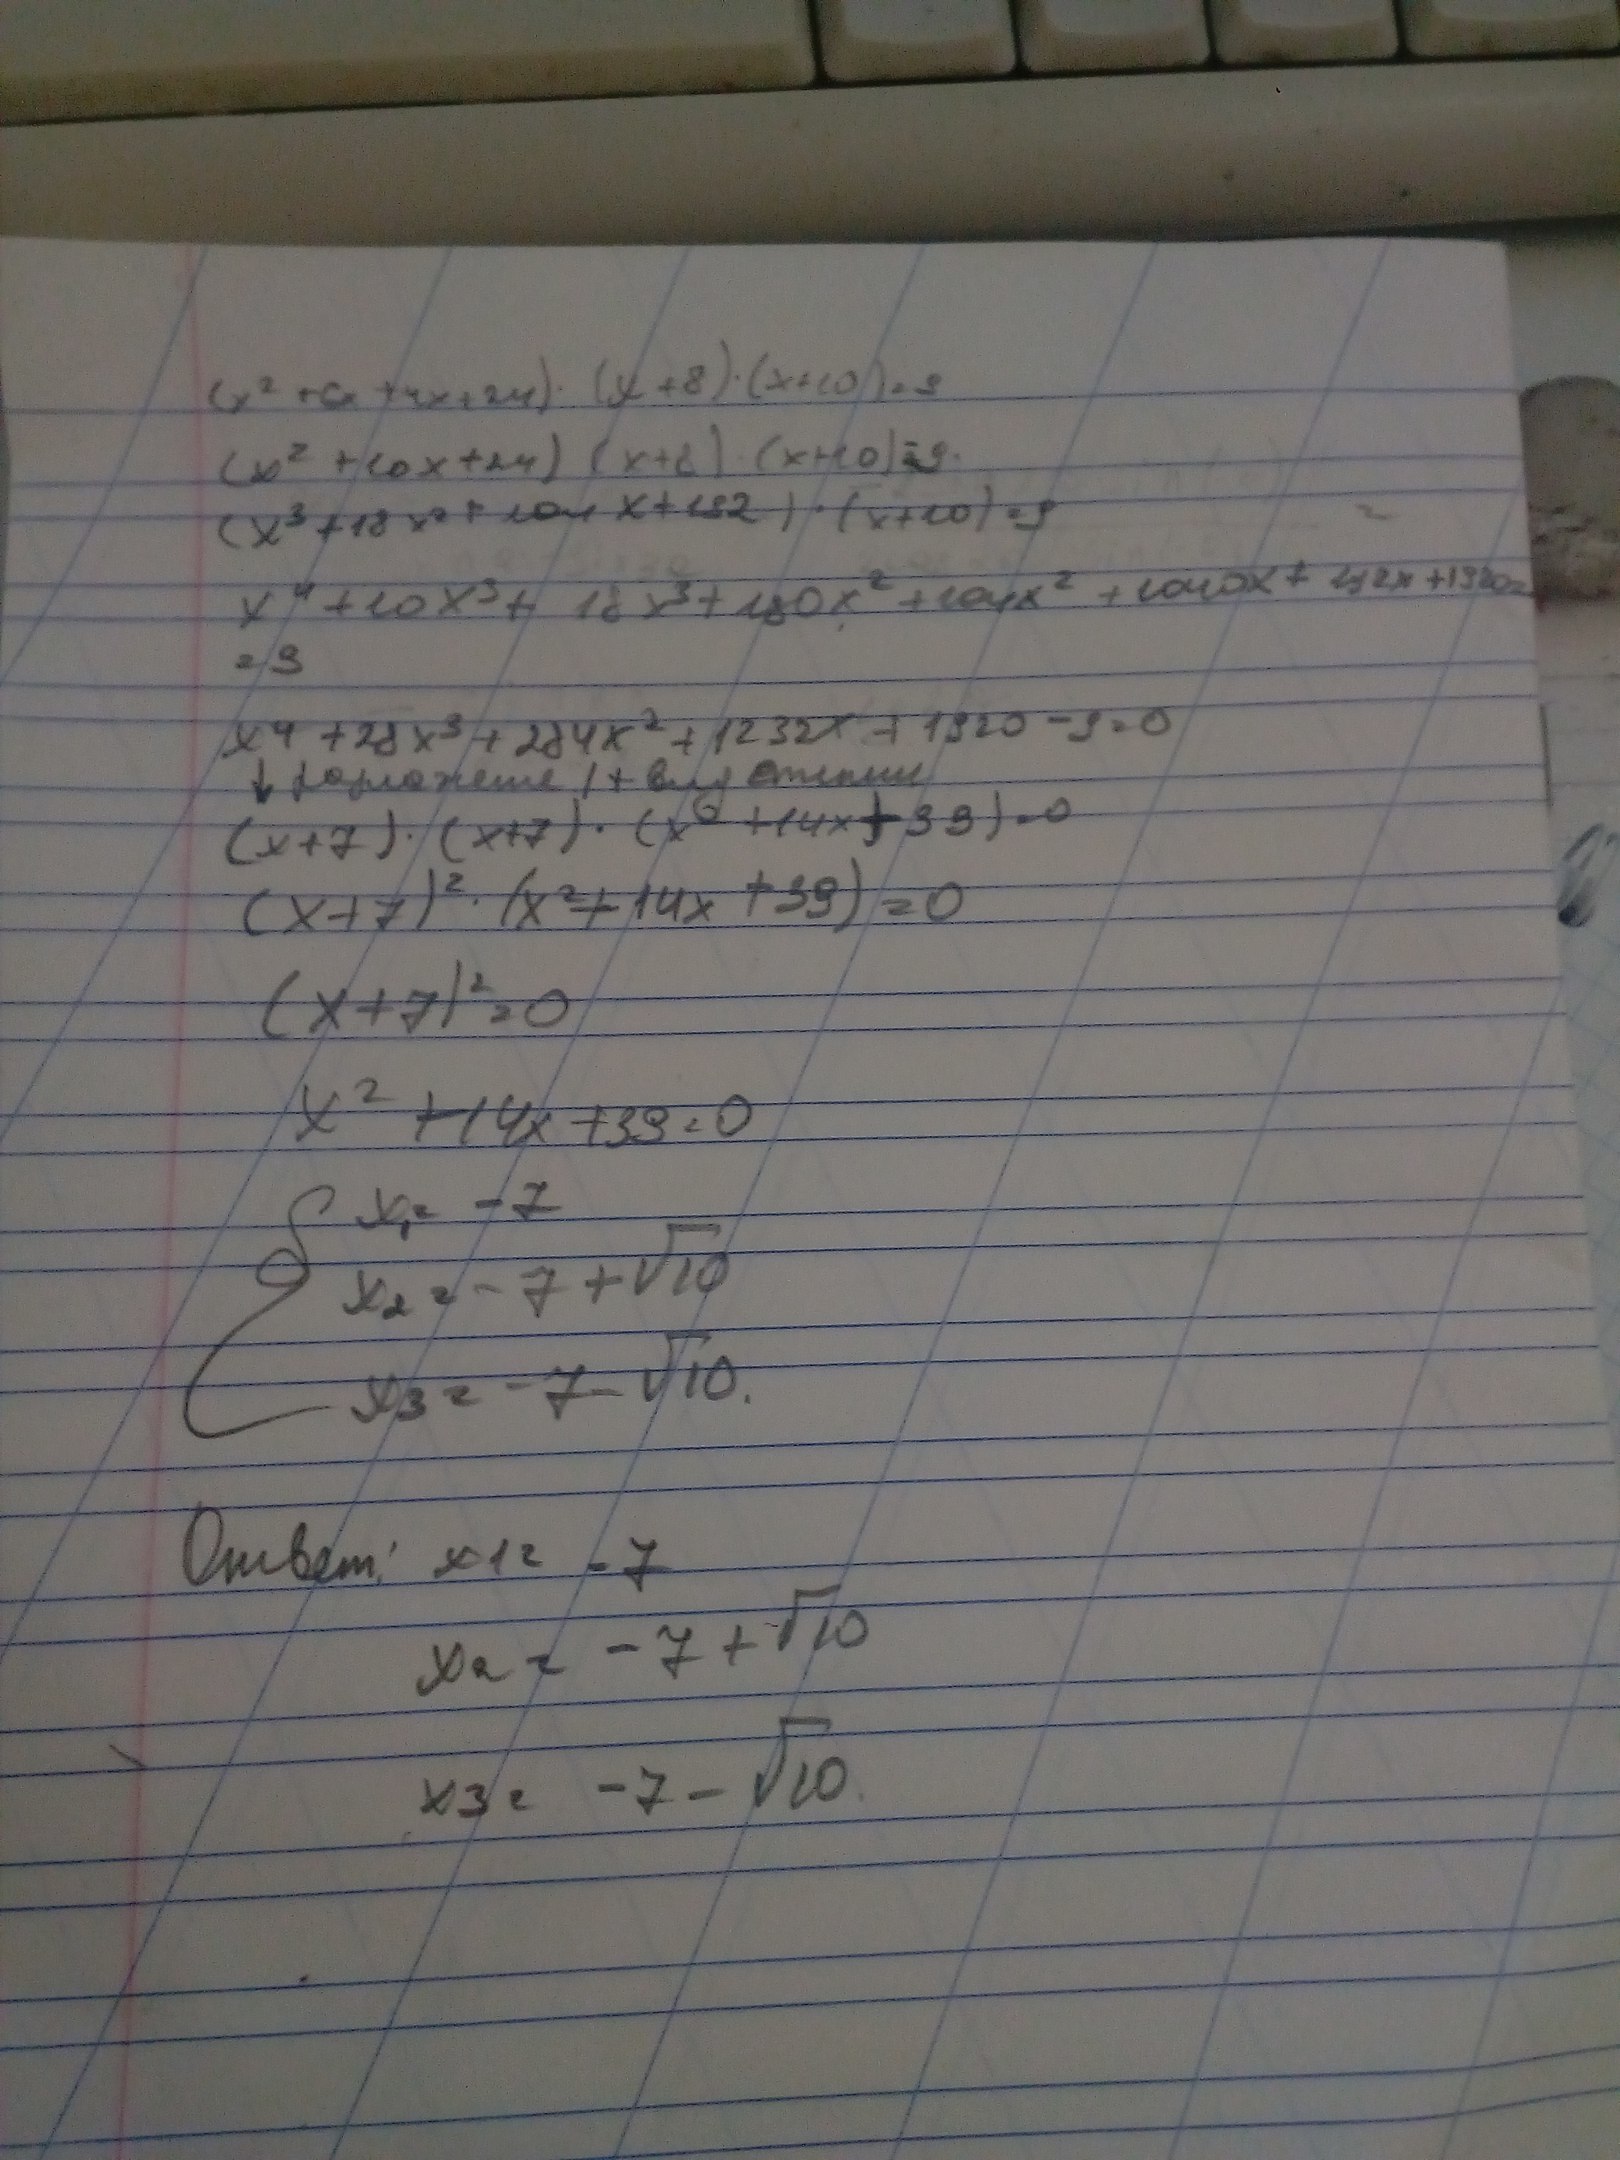 (x² + 6x + 4x + 24) · (x + 8) · (x + 10) = 9
(x² + 10x + 24) (x + 8) · (x + 10) = 9.
(x³ + 18x² + 104x + 192) · (x + 10) = 9
x⁴ + 10x³ + 18x³ + 180x² + 104x² + 1040x + 192x + 1920 =
= 9
x⁴ + 28x³ + 284x² + 1232x + 1920 - 9 = 0
↓
(x + 7) · (x + 7) · (x² + 14x + 39) = 0
(x + 7)² · (x² + 14x + 39) = 0
(x + 7)² = 0
x² + 14x + 39 = 0
x₁ = -7
x₂ = -7 + √10
x₃ = -7 - √10.
Ответ: x1 = -7
x2 = -7 + √10
x3 = -7 - √10.